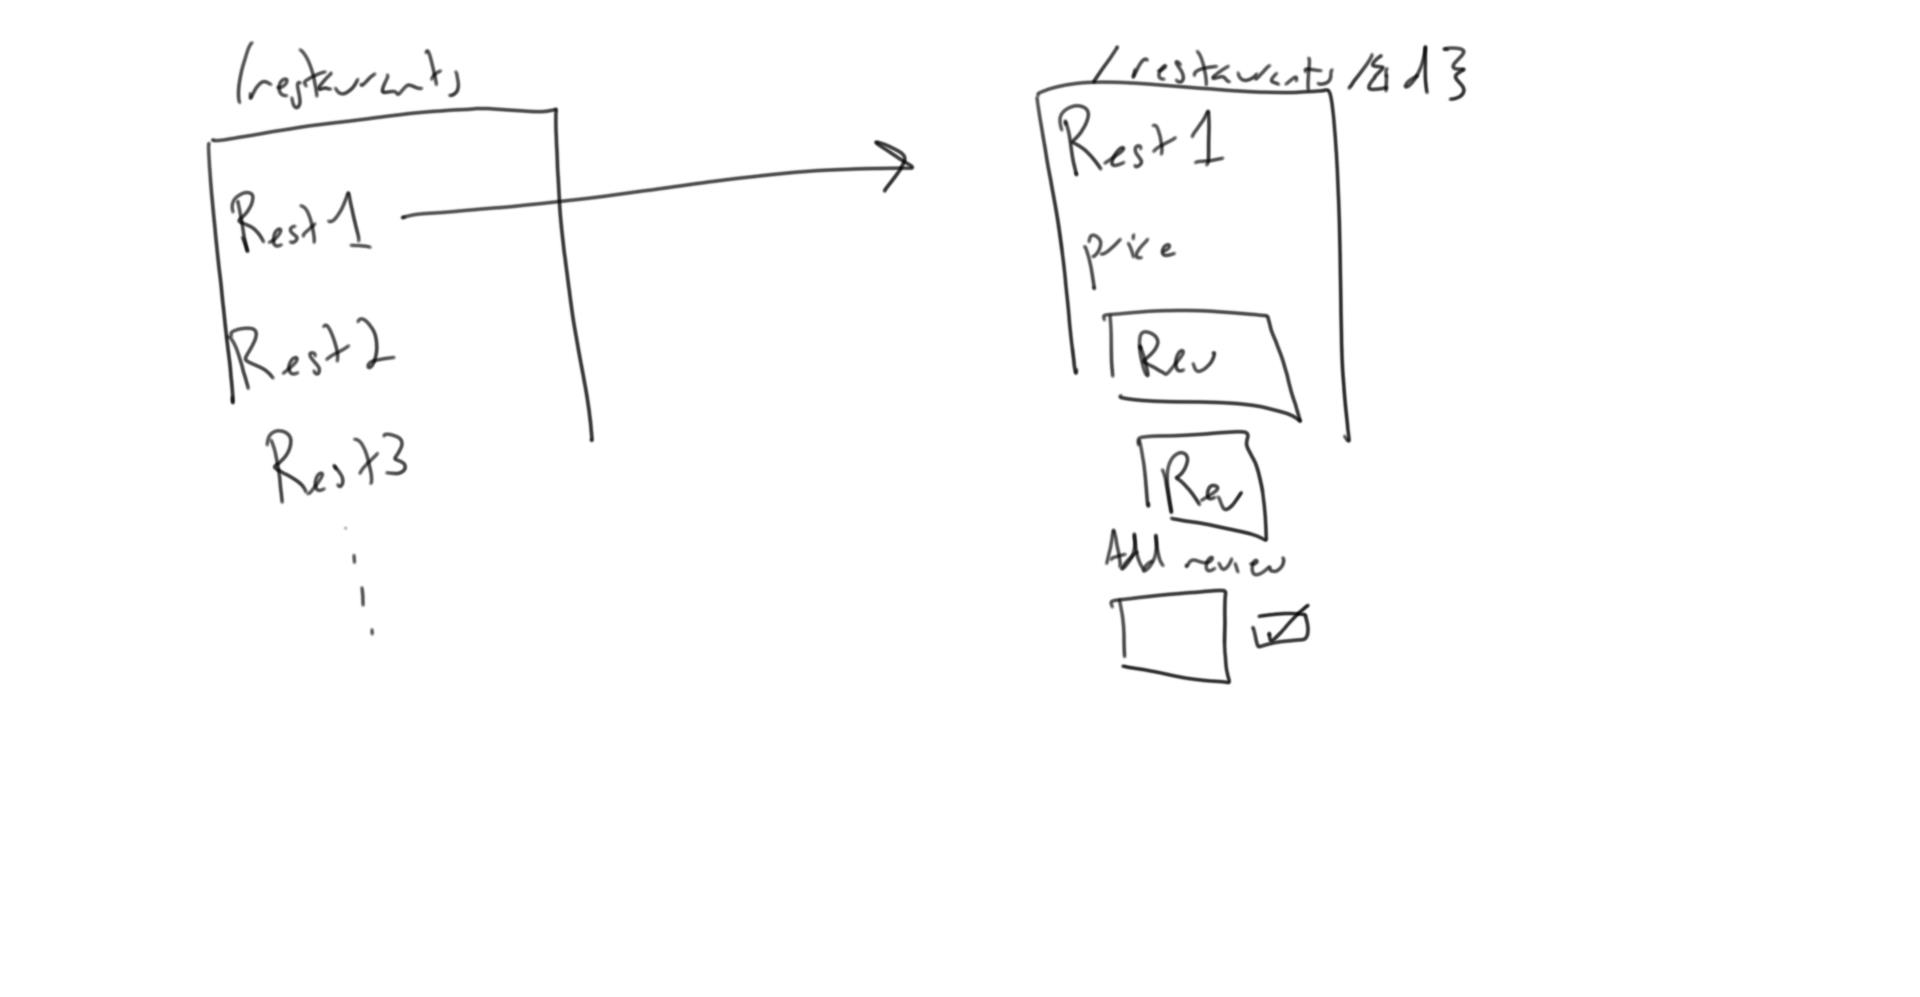 /restaurants
Rest1
Rest2
Rest3
/restaurants/{id}
Rest1
price
Rev
Rev
Add review